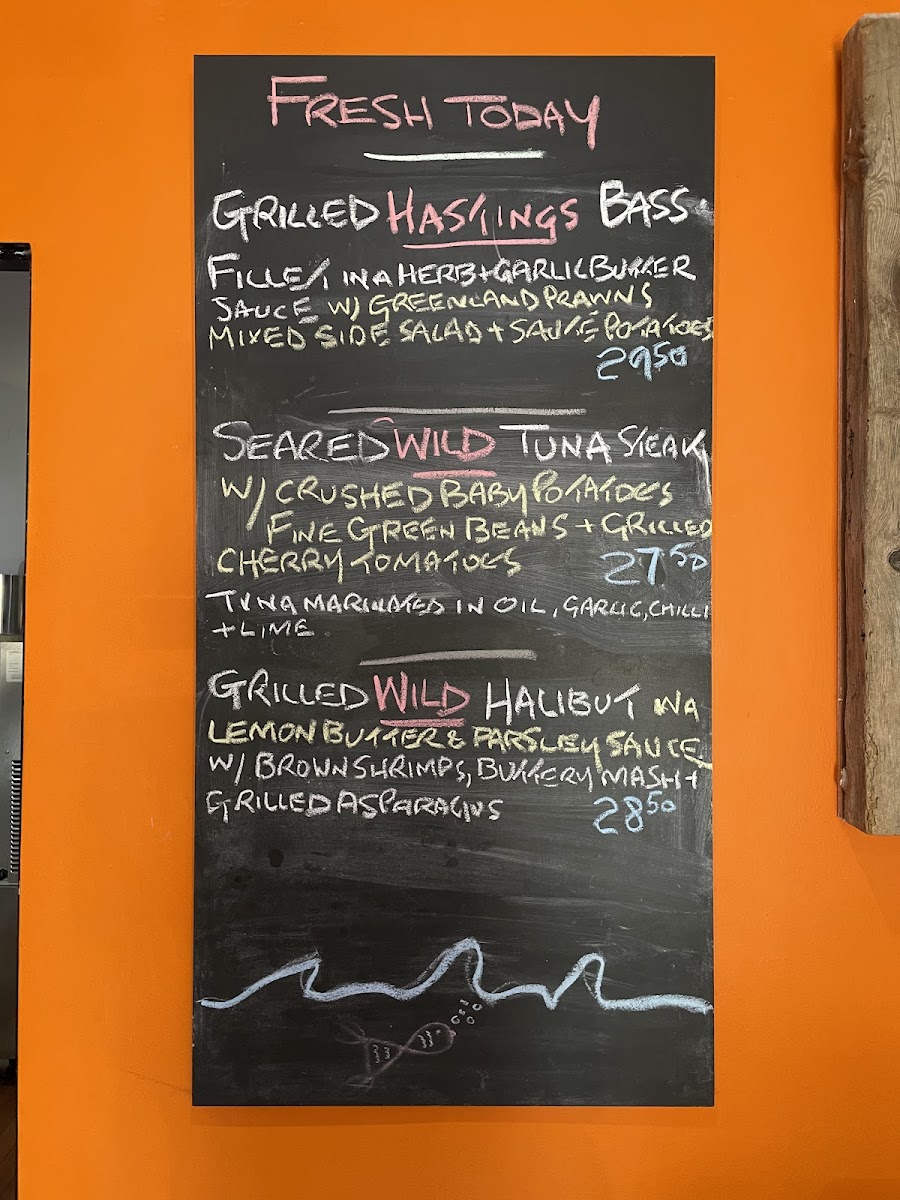 FRESH TODAY
GRILLED HASTINGS BASS
FILLET IN A HERB + GARLIC BUTTER
SAUCE W/ GREENLAND PRAWNS
MIXED SIDE SALAD + SAUTÉ POTATOES
29.50
SEARED WILD TUNA STEAK
W/ CRUSHED BABY POTATOES
FINE GREEN BEANS + GRILLED
CHERRY TOMATOES 27.50
TUNA MARINATED IN OIL, GARLIC, CHILLI
+ LIME
GRILLED WILD HALIBUT IN A
LEMON BUTTER & PARSLEY SAUCE
W/ BROWN SHRIMPS, BUTTERY MASH +
GRILLED ASPARAGUS 28.50